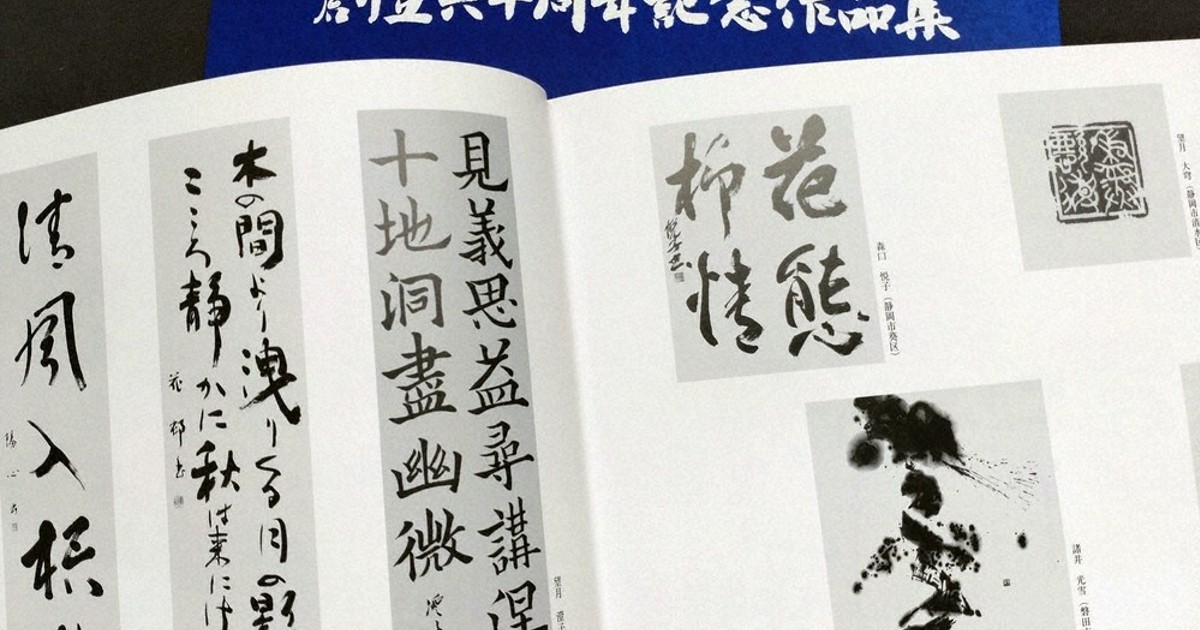 創立六十周年記念作品集
望月 大穹（静岡市清水区
花態
柳情
悦子書
森口 悦子（静岡市葵区）
諸井 光雪（磐田市
見義思益尋講
十地洞盡幽微
望月 澄子
木の間より洩りくる月の影
こころ静かに秋は来にけ
花邨書
清風入